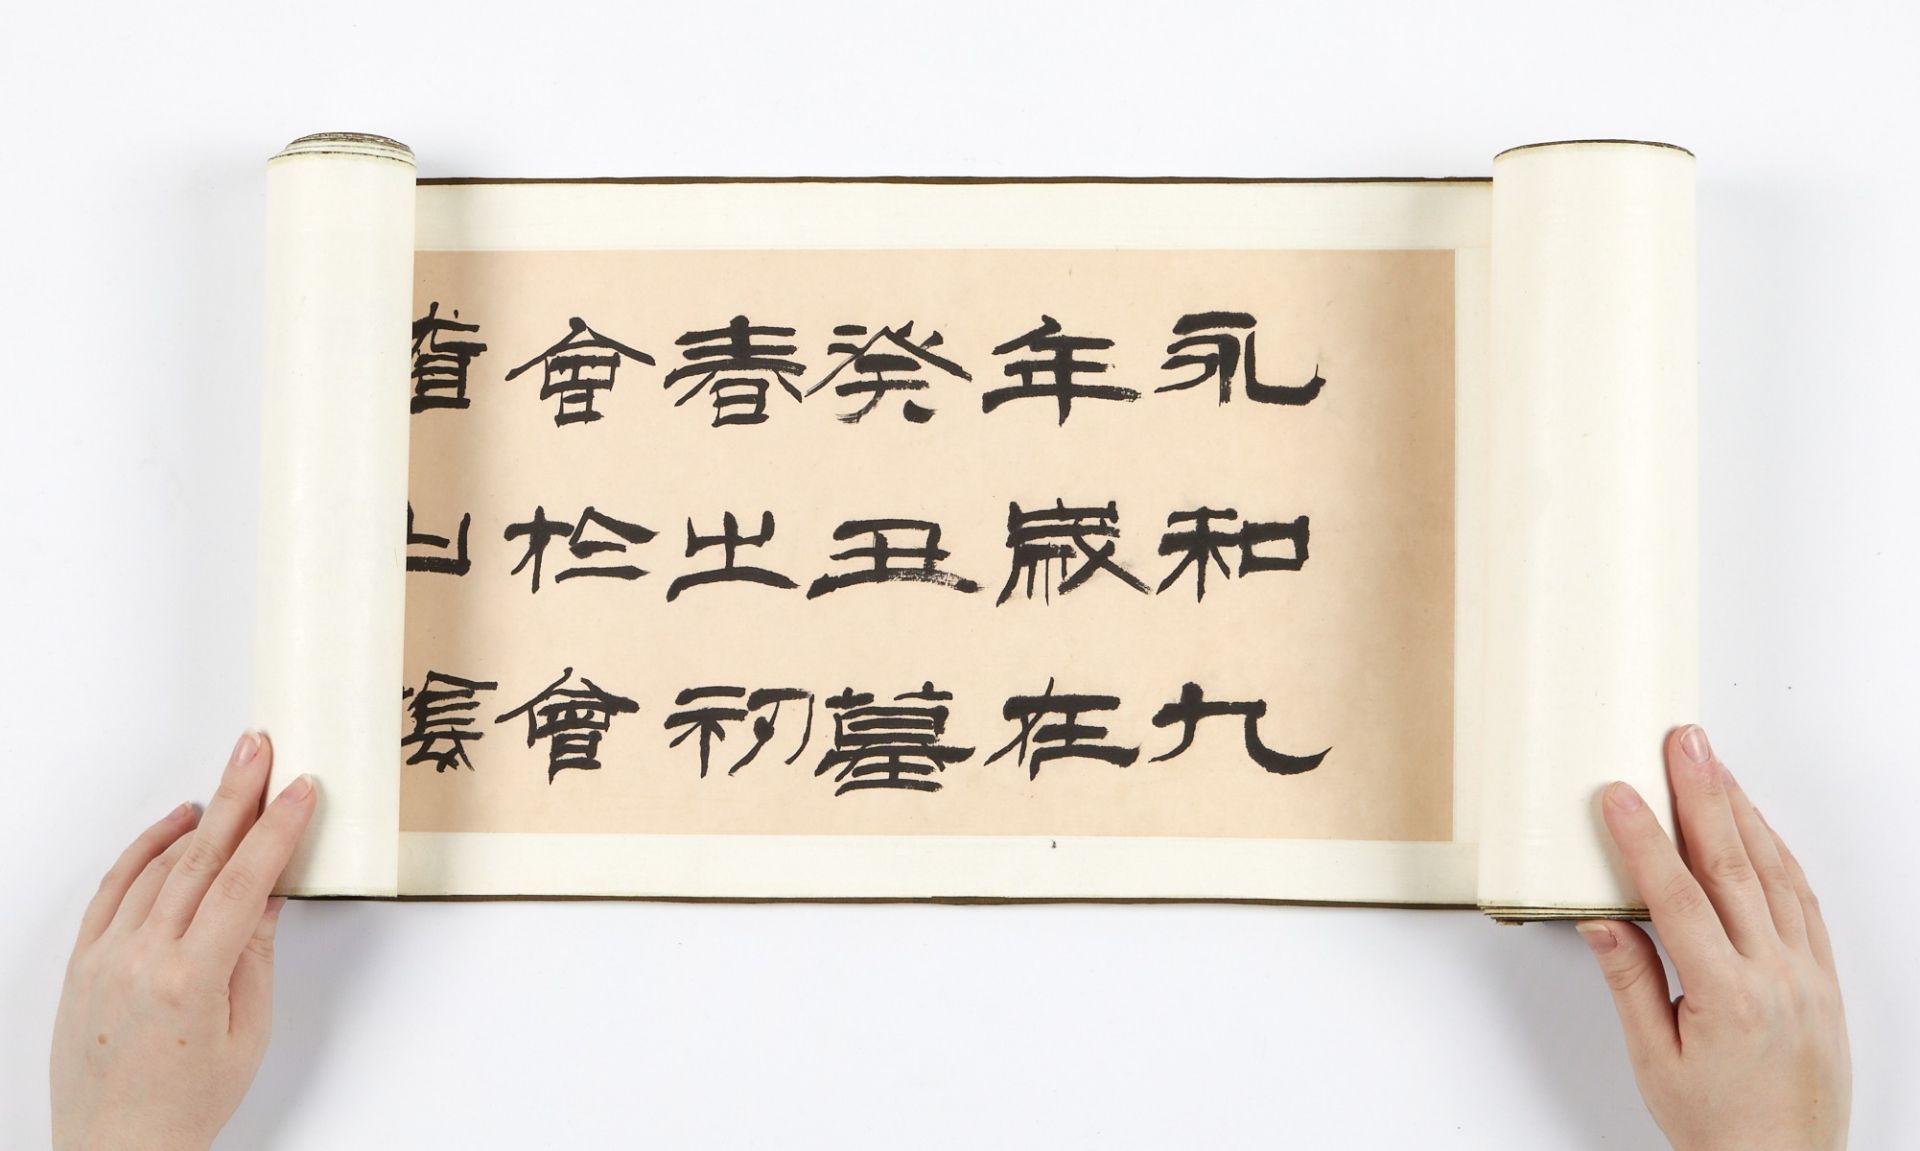 永和九
年歲在
癸丑墓
春之初
會於會
稽山陰